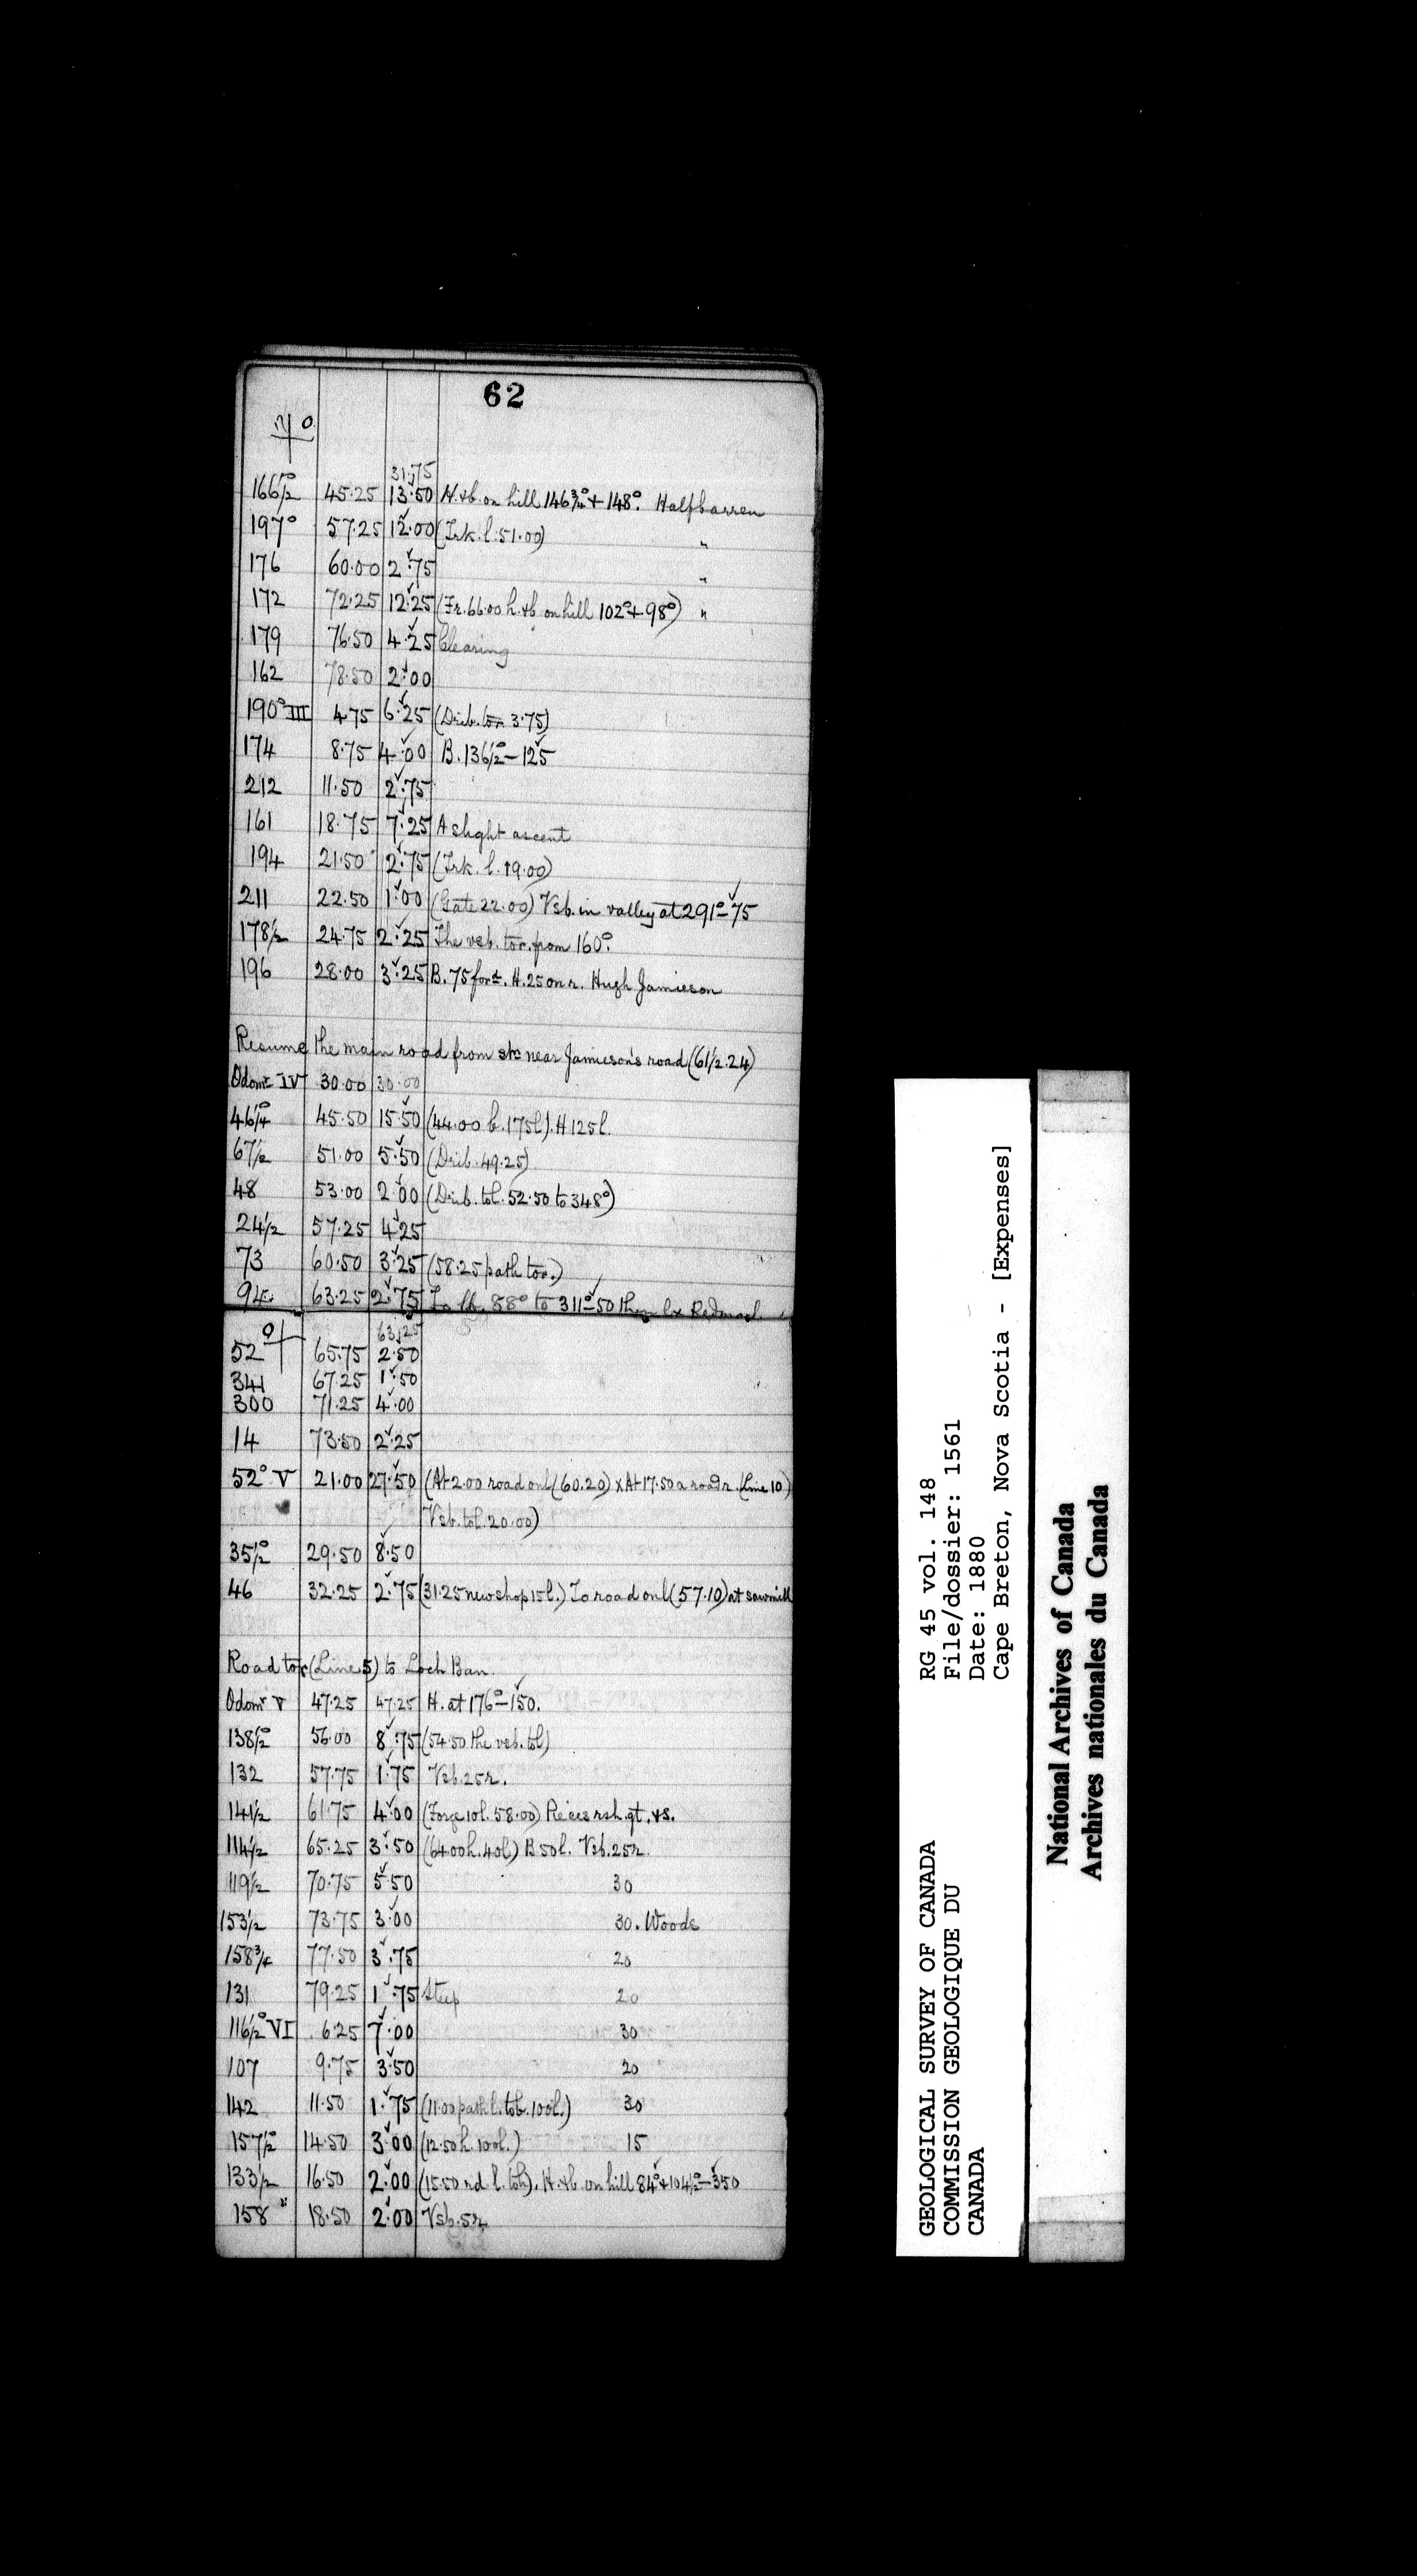 62
31.75
166½° 45.25 13.50 H.+b. on hill 146¾°+148°. Halfbarren
197° 57.25 12.00 (Trk. l. 51.00) "
176 60.00 2.75 "
172 72.25 12.25 (Fr. 66.00 h.+b. on hill 102°+98°) "
179 76.50 4.25 Clearing
162 78.50 2.00
190° III 4.75 6.25 (Drib. tor 3.75)
174 8.75 4.00 B. 136½°–125
212 11.50 2.75
161 18.75 7.25 A slight ascent
194 21.50 2.75 (Trk. l. 19.00)
211 22.50 1.00 (Gate 22.00) Vsb. in valley at 291°–75
178½ 24.75 2.25 The vsb. tor. from 160°.
196 28.00 3.25 B. 75 for.t. H. 25 on r. Hugh Jamieson
Resume the main road from stn near Jamieson's road (61½.24)
Odomr IV 30.00 30.00
46¼° 45.50 15.50 (44.00 b. 175l). H 125l.
67½ 51.00 5.50 (Drib. 49.25)
48 53.00 2.00 (Drib. tol. 52.50 to 348°)
24½ 57.25 4.25
73 60.50 3.25 (58.25 path tor.)
94 63.25 2.75 88° to 311°–50
63.25
52 65.75 2.50
341 67.25 1.50
300 71.25 4.00
14 73.50 2.25
52° V 21.00 27.50 (At 2.00 road onl (60.20) x At 17.50 a road r. (Line 10)
Vsb. tol. 20.00)
35½° 29.50 8.50
46 32.25 2.75 (31.25 new shop 15l.) To road onl (57.10) at sawmill
Road tor (Line 5) to Loch Ban.
Odomr V 47.25 47.25 H. at 176°–150.
138½° 56.00 8.75 (54.50 the vsb. tol)
132 57.75 1.75 Vsb. 25r.
141½ 61.75 4.00 (Forge 10l. 58.00) Pieces rsh. qt. +s.
114½ 65.25 3.50 (64.00 h. 40l) B 50l. Vsb. 25r.
119½ 70.75 5.50 30
153½ 73.75 3.00 30. Woods
158¾ 77.50 3.75 20
131 79.25 1.75 Steep 20
116½° VI 6.25 7.00 30
107 9.75 3.50 20
142 11.50 1.75 (11.00 path l. tob. 100l.) 30
157½° 14.50 3.00 (12.50 h. 100l.) 15
133½ 16.50 2.00 (15.50 rd l. toh). H.+b. on hill 84°+104½°–350
158 18.50 2.00 Vsb. 5r.
GEOLOGICAL SURVEY OF CANADA
COMMISSION GEOLOGIQUE DU
CANADA
RG 45 vol. 148
File/dossier: 1561
Date: 1880
Cape Breton, Nova Scotia - [Expenses]
National Archives of Canada
Archives nationales du Canada